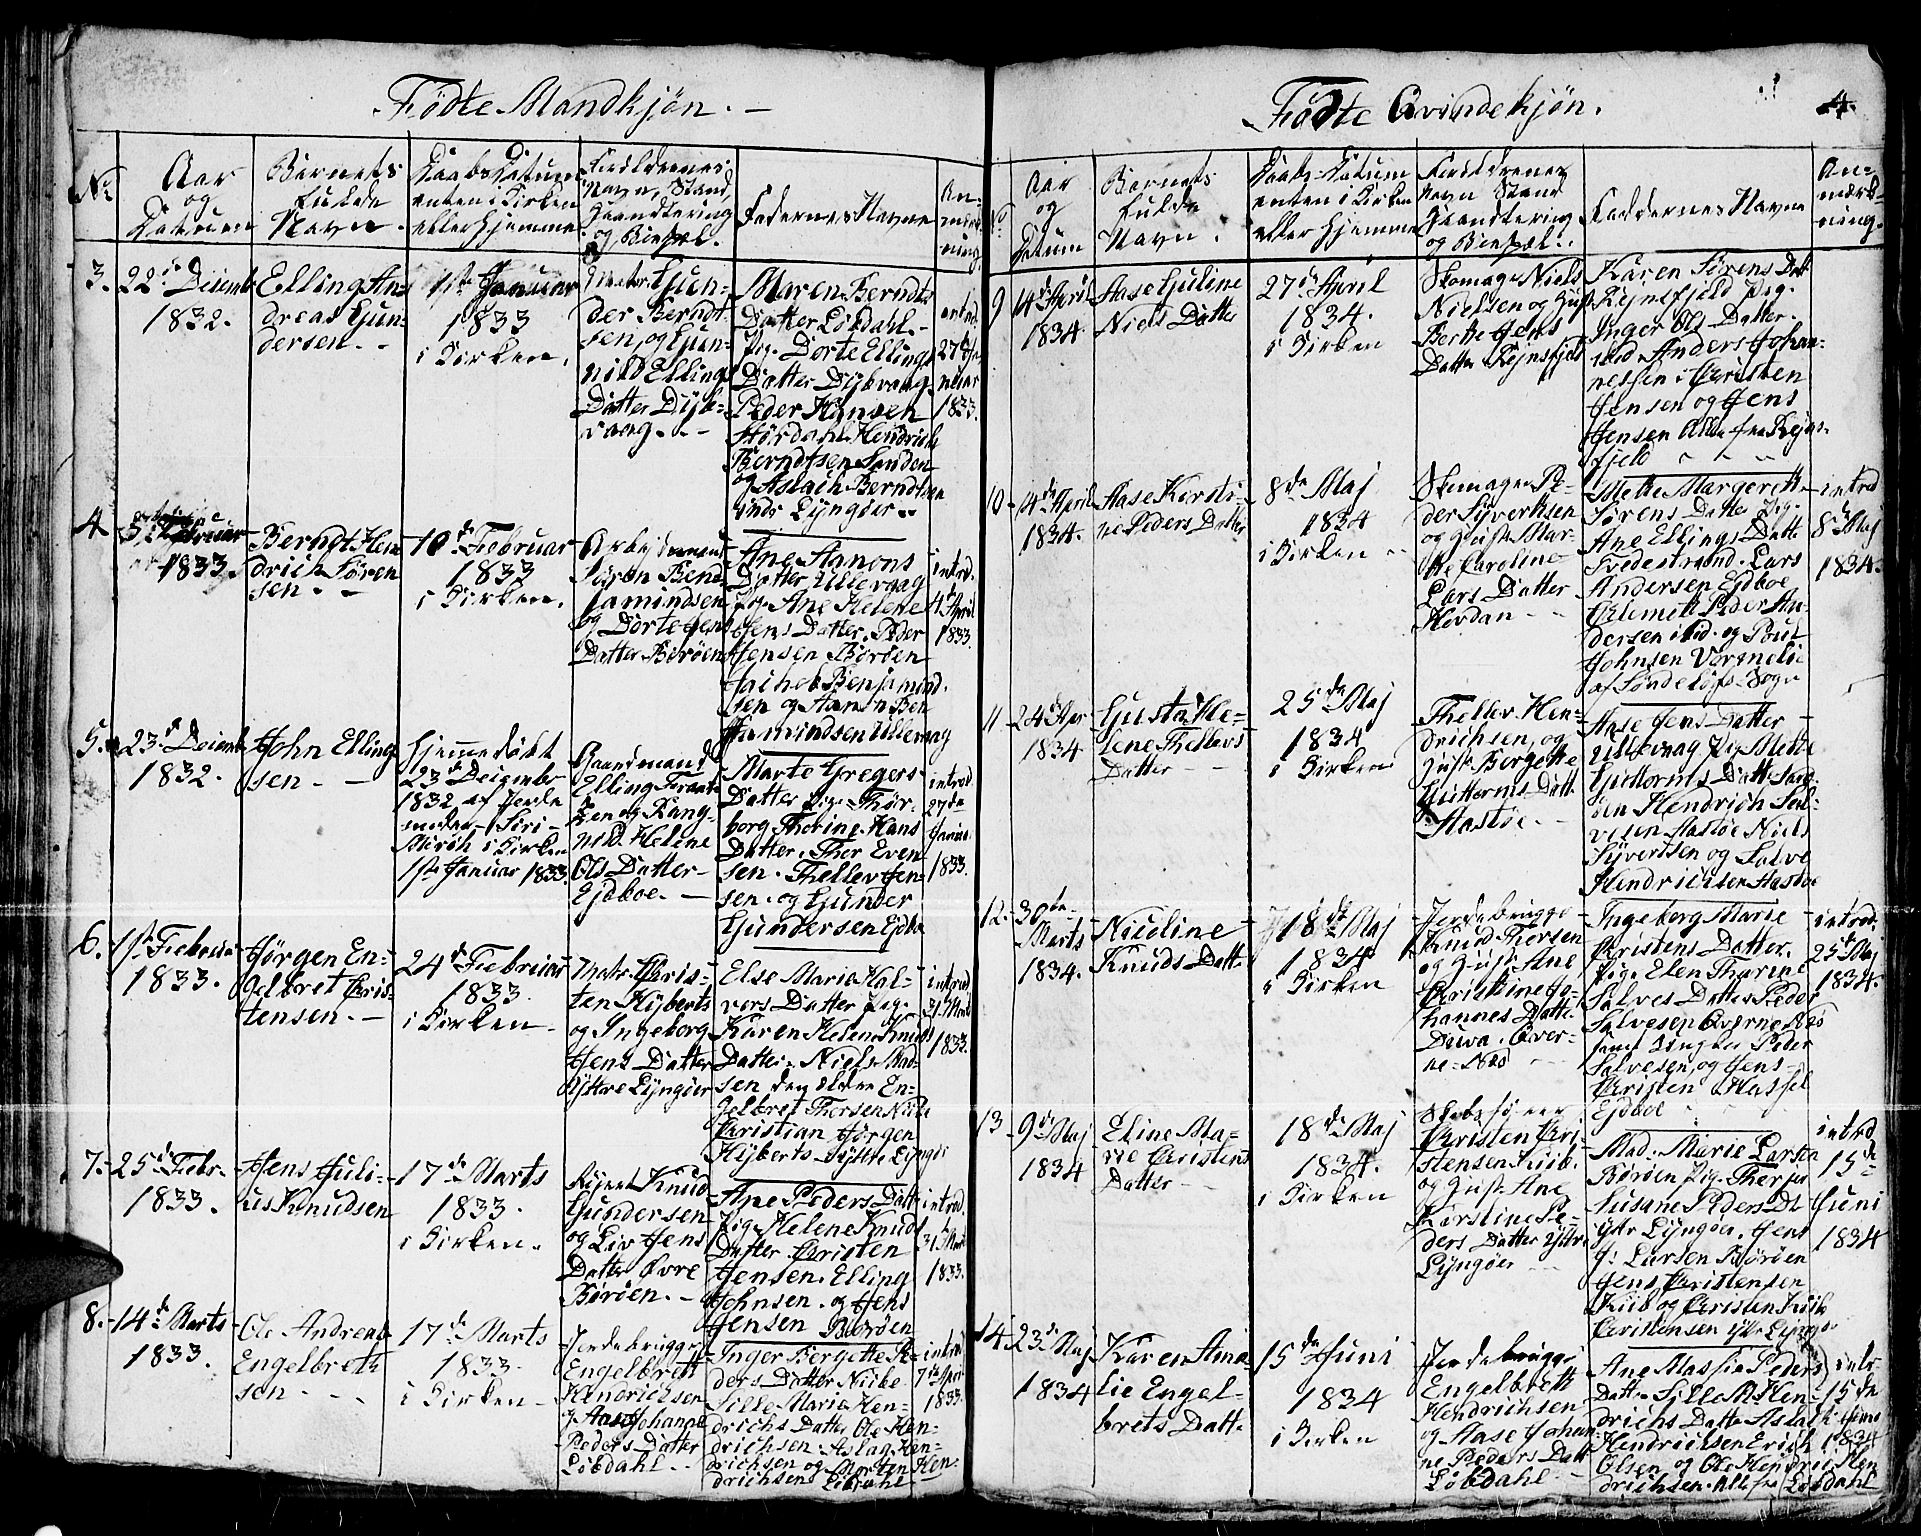 Fødte Mandkjøn. —
No
Aar
og
Datum
Barnets
fulde
Navn.
Daabs Datum
enten i Kirken
eller hjemme
Forældrenes
Navn, Stand,
Haandtering
og Bopæl.
Faddernes Navne
An-
mærk-
ning
3.
22de Decemb.
1832.
Elling An-
dreas Gun-
dersen. -
1ste Januar
1833
i Kirken.
Gun-
der Berndt-
sen, og Gun-
nild Ellings
Datter Dybv-
vaag. -
Maren Berndts
Datter Løvdahl.
Pig. Dorte Ellings
Datter Dybvaag
Peder Hansen
Størdahl Hendrich
Berndtsen Sanden
og Aslach Berndtsen
Lyngøer. -
introd.
27de Ja-
nuar
1833.
4
1833.
Berndt Hen
drich Søren
sen. -
10de Februar
1833
i Kirken.
Arbejdsmand
Søren Benj
jamindsen
og Dorte Jens
Datter Borøen
Ane Aanons
Datter Ullervaag
Pig. Ane Helene
Jens Datter. Peder
Jensen Borøen
Jachob Benjamind.
sen og Aanon Ben
jamindsen Ullervaag
introd.
4 April
1833.
5.
23de Decemb
1832.
John Elling
sen. -
hjemmedøbt
23de Decembr
1832 af Jorde
moder Siri
i Kirken
1ste Januar 1833.
Gaardmand
Elling Terant
zen og Rang-
nild Helene
Ols Datter
Ejdboe. -
Marte Gregers
Datter Pig. Thør-
borg Thorine Hans
Datter. Thor Even-
sen. Thellev Jen-
sen. og Gunder
Gundersen Ejdbo
introd.
27de
Janua.
1833.
6.
1ste Februar
1833.
Jørgen En-
gelbret Chris-
tensen. -
24de Februar
1833.
i Kirken -
Matr. Chris-
ten Nyberts
og Ingeborg
Jens Datter
Yttre Lyngøer
Else Maria Hal-
vors Datter Pig.
Karen Helene Knuds
Datter. Niels Mad-
sen den ældre En-
gelbret Thorsen Nibe
Christian Jørgen
Nyberts Yttre Lyngør
introd
31 Marts
1833.
7.
25de Febr.
1833.
Jens Juli-
us Knudsen
17de Marts
1833.
i Kirken.
Rejert Knud
Gundersen
og Liv Jens
Datter Øvre
Borøen. -
Ane Peders Datter
Pig. Helene Knuds
Datter Christen
Jensen. Elling
Johnsen. og Jens
Jensen Borøen
introd.
31 Marts
1833.
8.
14de Marts
1833.
Ole Andreas
Engelbrets
sen -
17de Marts
1833.
i Kirken -
Jordebrugger
Engelbrett
Hendrichsen
og Aase Johanne
Peders Datter
Løvdahl -
Inger Bergette Pe-
ders Datter Nibe
Sille Maria Hen-
drichs Datter Ole Hen-
drichsen. Aslag Hen-
drichsen og Morten Hen-
drichsen Løvdahl
introd
7de April
1833.
Fødte Qvindekjøn.
4.
No
Aar
og
Datum
Barnets
fulde
Navn.
Daabs-Datum
enten i Kirken
eller hjemme
Forældrenes
Navn Stand
Haandtering
og Bopæl.
Faddernes Navne
An-
mærk-
ning.
9
14de April
1834
Aase Guline
Niels Datter
27de April
1834.
i Kirken
Skomager Niels
Nielsen og Hust.
Berthe Jens
Datter Rejnsfjeld
Karen Sørens Dat
Rejnsfjeld Pig.
Inger Ols Datter.
ibid Anders Johan-
nessen. Christen
Jensen og Jens
Jensen Alle fra Rejns-
fjeld
10
14de April
1834.
Aase Kirsti-
ne Peders Datter
8de Maj
1834
i Kirken -
Skomager Pe-
der Syvertsen
og Hust. Mar-
the Caroline
Lars Datter
Hovdan -
Mette Margerett
Sørens Datter Pig.
Ane Ellings Datt
Tvedestrand. Lars
Andersen Ejdboe
Peder An-
dersen ibid. og Poul
Johnsen Vormelie
af Søndeløfs-Sogn
introd
8de Maj
1834.
11
24de Apr
1834
Gusta He-
lene Thellevs
Datter -
25de Maj
1834
i Kirken
Thellev Hen-
drichsen, og
Hust. Bergette
Guttorms Datt
Aastøe. -
Aase Jens Datter
Ullervaag Pig. Mette
Guttorms Datt. San-
den Hendrich Sal-
vesen Aastøe Niels
Syvertsen og Salve
Hendrichsen Aastøe
12.
30te
Marts
1834.
Nicoline
Knuds Datt
18de Maj
1834
i Kirken
Jordebrugger
Knud Thorsen
og Hust. Ane
Christine Jo-
hannes Datter
Qver-
ne-Næs
Ingeborg Marie
Christens Datter.
Pig. Elen Tharine
Salves Datter Peder
Salvesen Qverne Næs
samt Ungkar Peder
Salvesen, og Jens
Christen Hassel
Ejdboe
introd.
25de Maj
1834.
13
9de Maj
1834
Eline Ma-
rie Christens
Datter -
18de Maj
1834.
i Kirken
Skibsfører
Christen Chri-
stensen Kiib.
og Hust. Ane
Kirstine Pe-
ders Datter Yttre
Lyngøer -
Mad. Marie Larsen
Borøen Pig. Therese
Susane Peders Dt
Yttr Lyngøer. Jens
J. Larsen Borøen
Jens Christensen
Kiib og Christen Kiib
Christensen Yttr Lyngør
introd
15de
Juni
1834
14
23de Maj
1834
Karen Ama-
lie Engel-
brets Datt
15de Juni
1834
i Kirken
Jordebrugger
Engelbrett
Hendrichsen
og Aase Johan-
ne Peders Datt
Løvdahl -
Ane Massia Peders
Datter Sille M. Hen-
drichs Datter Aslach
Hendrichsen Erich
Olsen og Ole Hendrich Hen
drichsen. Alle fra Løvdahl
intr
15de
Juni
1834